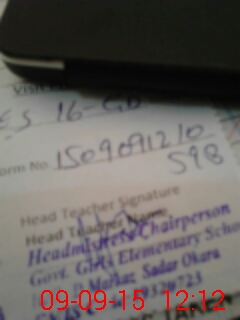 Visit
E S 16-GD
orm No. 1509091210
598
Head Teacher Signature
Head Teacher Name
Headmistress Chairperson
Govt. Girls Elementary Scho
Sadar Okara
09-09-15 12:12